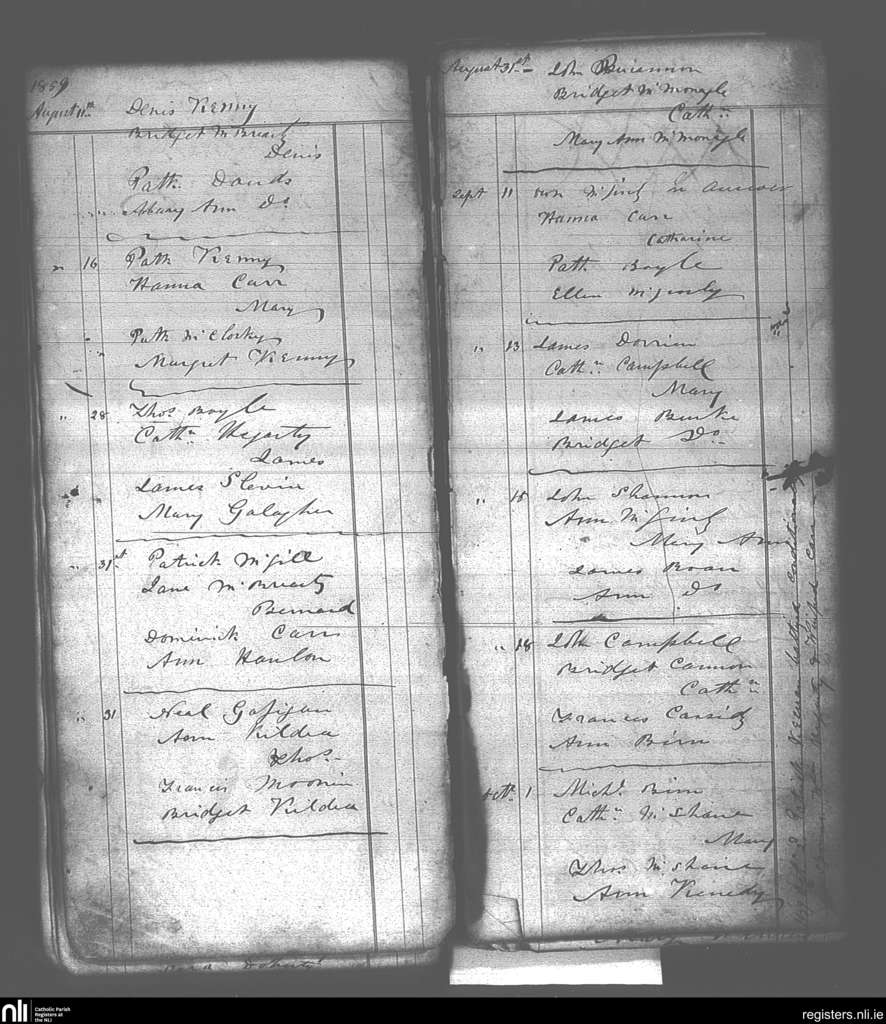 1859
August 11th Denis Kenny
Bridget McBrearty
Denis
Patk. Dauids
Mary Ann Do
" 16 Patk Kenny
Hanna Carr
Mary
Patk McClosky
Margret Kenny
" 28 Thos. Boyle
Cathn Hegarty
James
James Slevin
Mary Galagher
" 31st Patrick McGill
Jane McBrearty
Bernard
Dominick Carr
Ann Hanlon
" 31 Neal Gafigan
Ann Kildea
Thos.
Francis Moonin
Bridget Kildea
August 31st John
Bridget McMonagle
Cathn
Mary Ann McMonagle
Sept 11 McGinty
Hanna Carr
Catharine
Patk Boyle
Ellen McGinty
" 13 James Dorrian
Cathn. Campbell
Mary
James Burke
Bridget Do.
" 15 John Shannon
Ann McGinty
Mary Ann
James Roan
Ann Do
" 18 John Campbell
Bridget Cannon
Cathn
Frances Cassidy
Ann Birn
Octr. 1 Michl. Birn
Cathn McShane
Mary
Thos McShane
Ann Kenedy
Patrick Keenan baptised conditionally
nli
Catholic Parish
Registers at
the NLI
registers.nli.ie